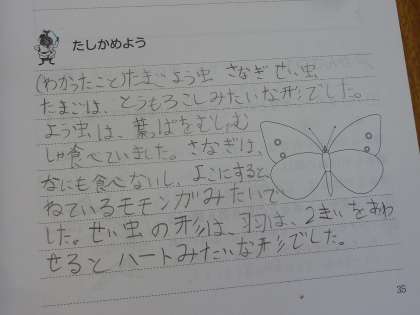 たしかめよう
(わかったこと)たまごよう虫 さなぎ せい虫
たまごは、とうもろこしみたいな形でした。
よう虫は、葉っぱをむしゃむ
しゃ食べていました。さなぎは、
なにも食べないし、よこにすると、
ねているモモンガみたいで
した。せい虫の形は、羽は、2まいをあわ
せるとハートみたいな形でした。
35